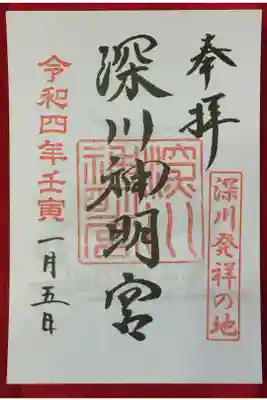 奉拝
深川発祥の地
深川神明宮
令和四年壬寅
一月五日